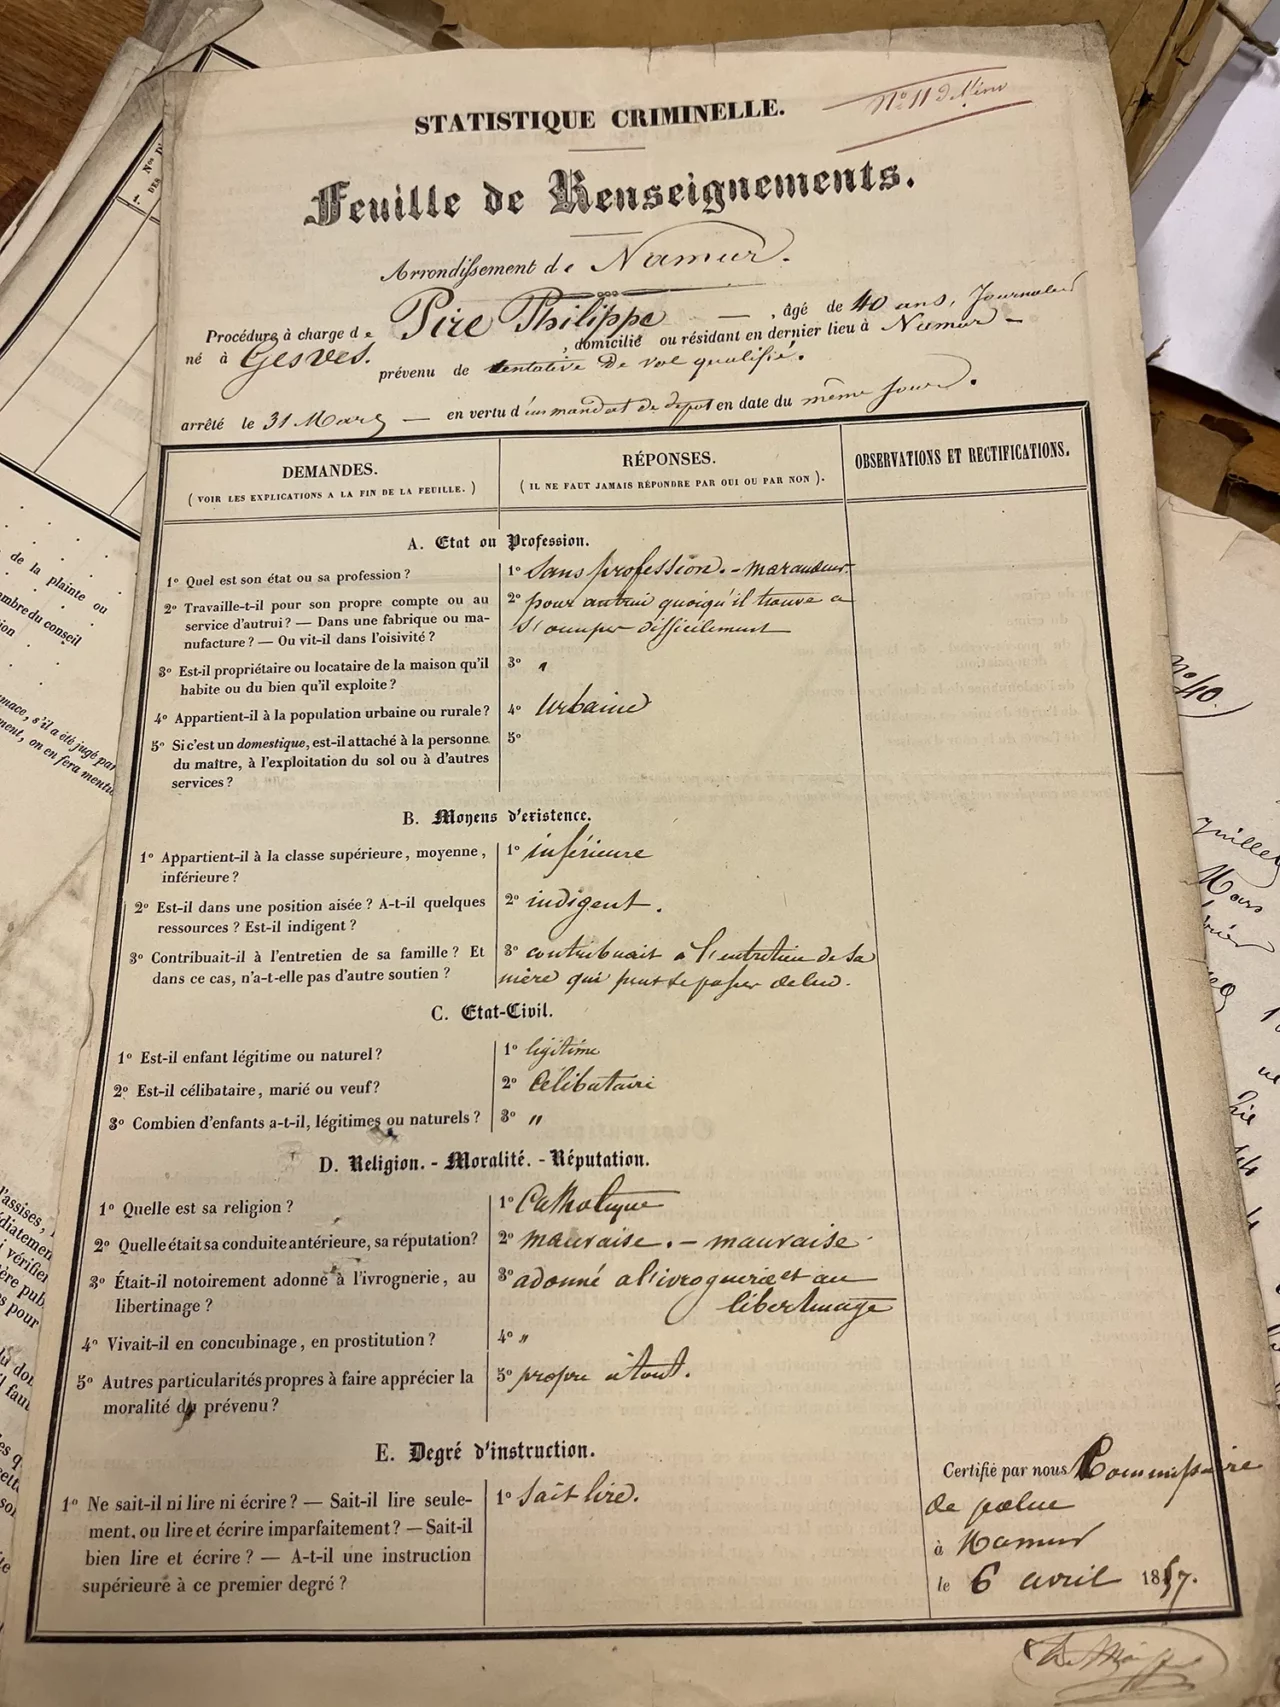 STATISTIQUE CRIMINELLE.
Nº 11 de l'inv
Feuille de Renseignements.
Arrondissement de Namur.
Procédure à charge de Pire Philippe — , âgé de 40 ans, Journalier
né à Gesves. , domicilié ou résidant en dernier lieu à Namur —
prévenu de tentative de vol qualifié.
arrêté le 31 Mars — en vertu d'un mandat de depot en date du même jour.
DEMANDES.
(VOIR LES EXPLICATIONS A LA FIN DE LA FEUILLE.)
RÉPONSES.
(IL NE FAUT JAMAIS RÉPONDRE PAR OUI OU PAR NON).
OBSERVATIONS ET RECTIFICATIONS.
A. Etat ou Profession.
1º Quel est son état ou sa profession?
1º Sans profession. - maraudeur
2º Travaille-t-il pour son propre compte ou au
service d'autrui? — Dans une fabrique ou ma-
nufacture? — Ou vit-il dans l'oisivité?
2º pour autrui quoiqu'il trouve a
s'occuper difficilement
3º Est-il propriétaire ou locataire de la maison qu'il
habite ou du bien qu'il exploite?
3º "
4º Appartient-il à la population urbaine ou rurale?
4º Urbaine
5º Si c'est un domestique, est-il attaché à la personne
du maître, à l'exploitation du sol ou à d'autres
services?
5º
B. Moyens d'existence.
1º Appartient-il à la classe supérieure, moyenne,
inférieure?
1º inférieure
2º Est-il dans une position aisée? A-t-il quelques
ressources? Est-il indigent?
2º indigent.
3º Contribuait-il à l'entretien de sa famille? Et
dans ce cas, n'a-t-elle pas d'autre soutien?
3º contribuait a l'entretien de sa
mère qui peut se passer de lui.
C. Etat-Civil.
1º Est-il enfant légitime ou naturel?
1º légitime
2º Est-il célibataire, marié ou veuf?
2º Célibataire
3º Combien d'enfants a-t-il, légitimes ou naturels?
3º "
D. Religion. - Moralité. - Réputation.
1º Quelle est sa religion?
1º Catholique
2º Quelle était sa conduite antérieure, sa réputation?
2º mauvaise. — mauvaise
3º Était-il notoirement adonné à l'ivrognerie, au
libertinage?
3º adonné a l'ivrognerie et au
libertinage
4º Vivait-il en concubinage, en prostitution?
4º "
5º Autres particularités propres à faire apprécier la
moralité du prévenu?
5º propre à tout.
E. Degré d'instruction.
1º Ne sait-il ni lire ni écrire? — Sait-il lire seule-
ment, ou lire et écrire imparfaitement? — Sait-il
bien lire et écrire? — A-t-il une instruction
supérieure à ce premier degré?
1º Sait lire.
Certifié par nous Commissaire
de police
à Namur
le 6 avril 1857.
de la plainte ou
mbre du conseil
nº 40.
juillet
Mars